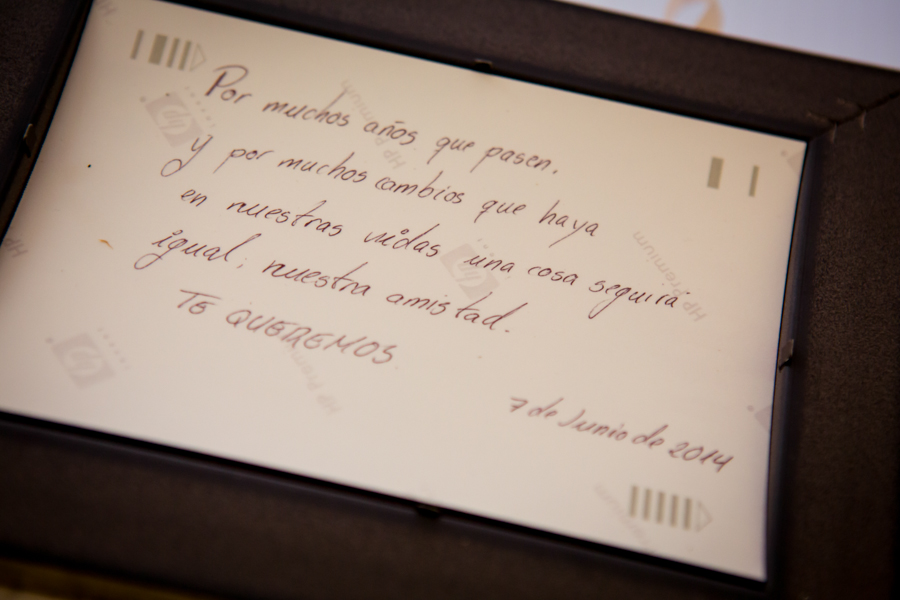 Por muchos años que pasen,
y por muchos cambios que haya
en nuestras vidas una cosa seguirá
igual: nuestra amistad.
TE QUEREMOS
7 de Junio de 2014
hp
HP Premium
HP Premium
hp
HP Premium
hp
HP Premium
HP